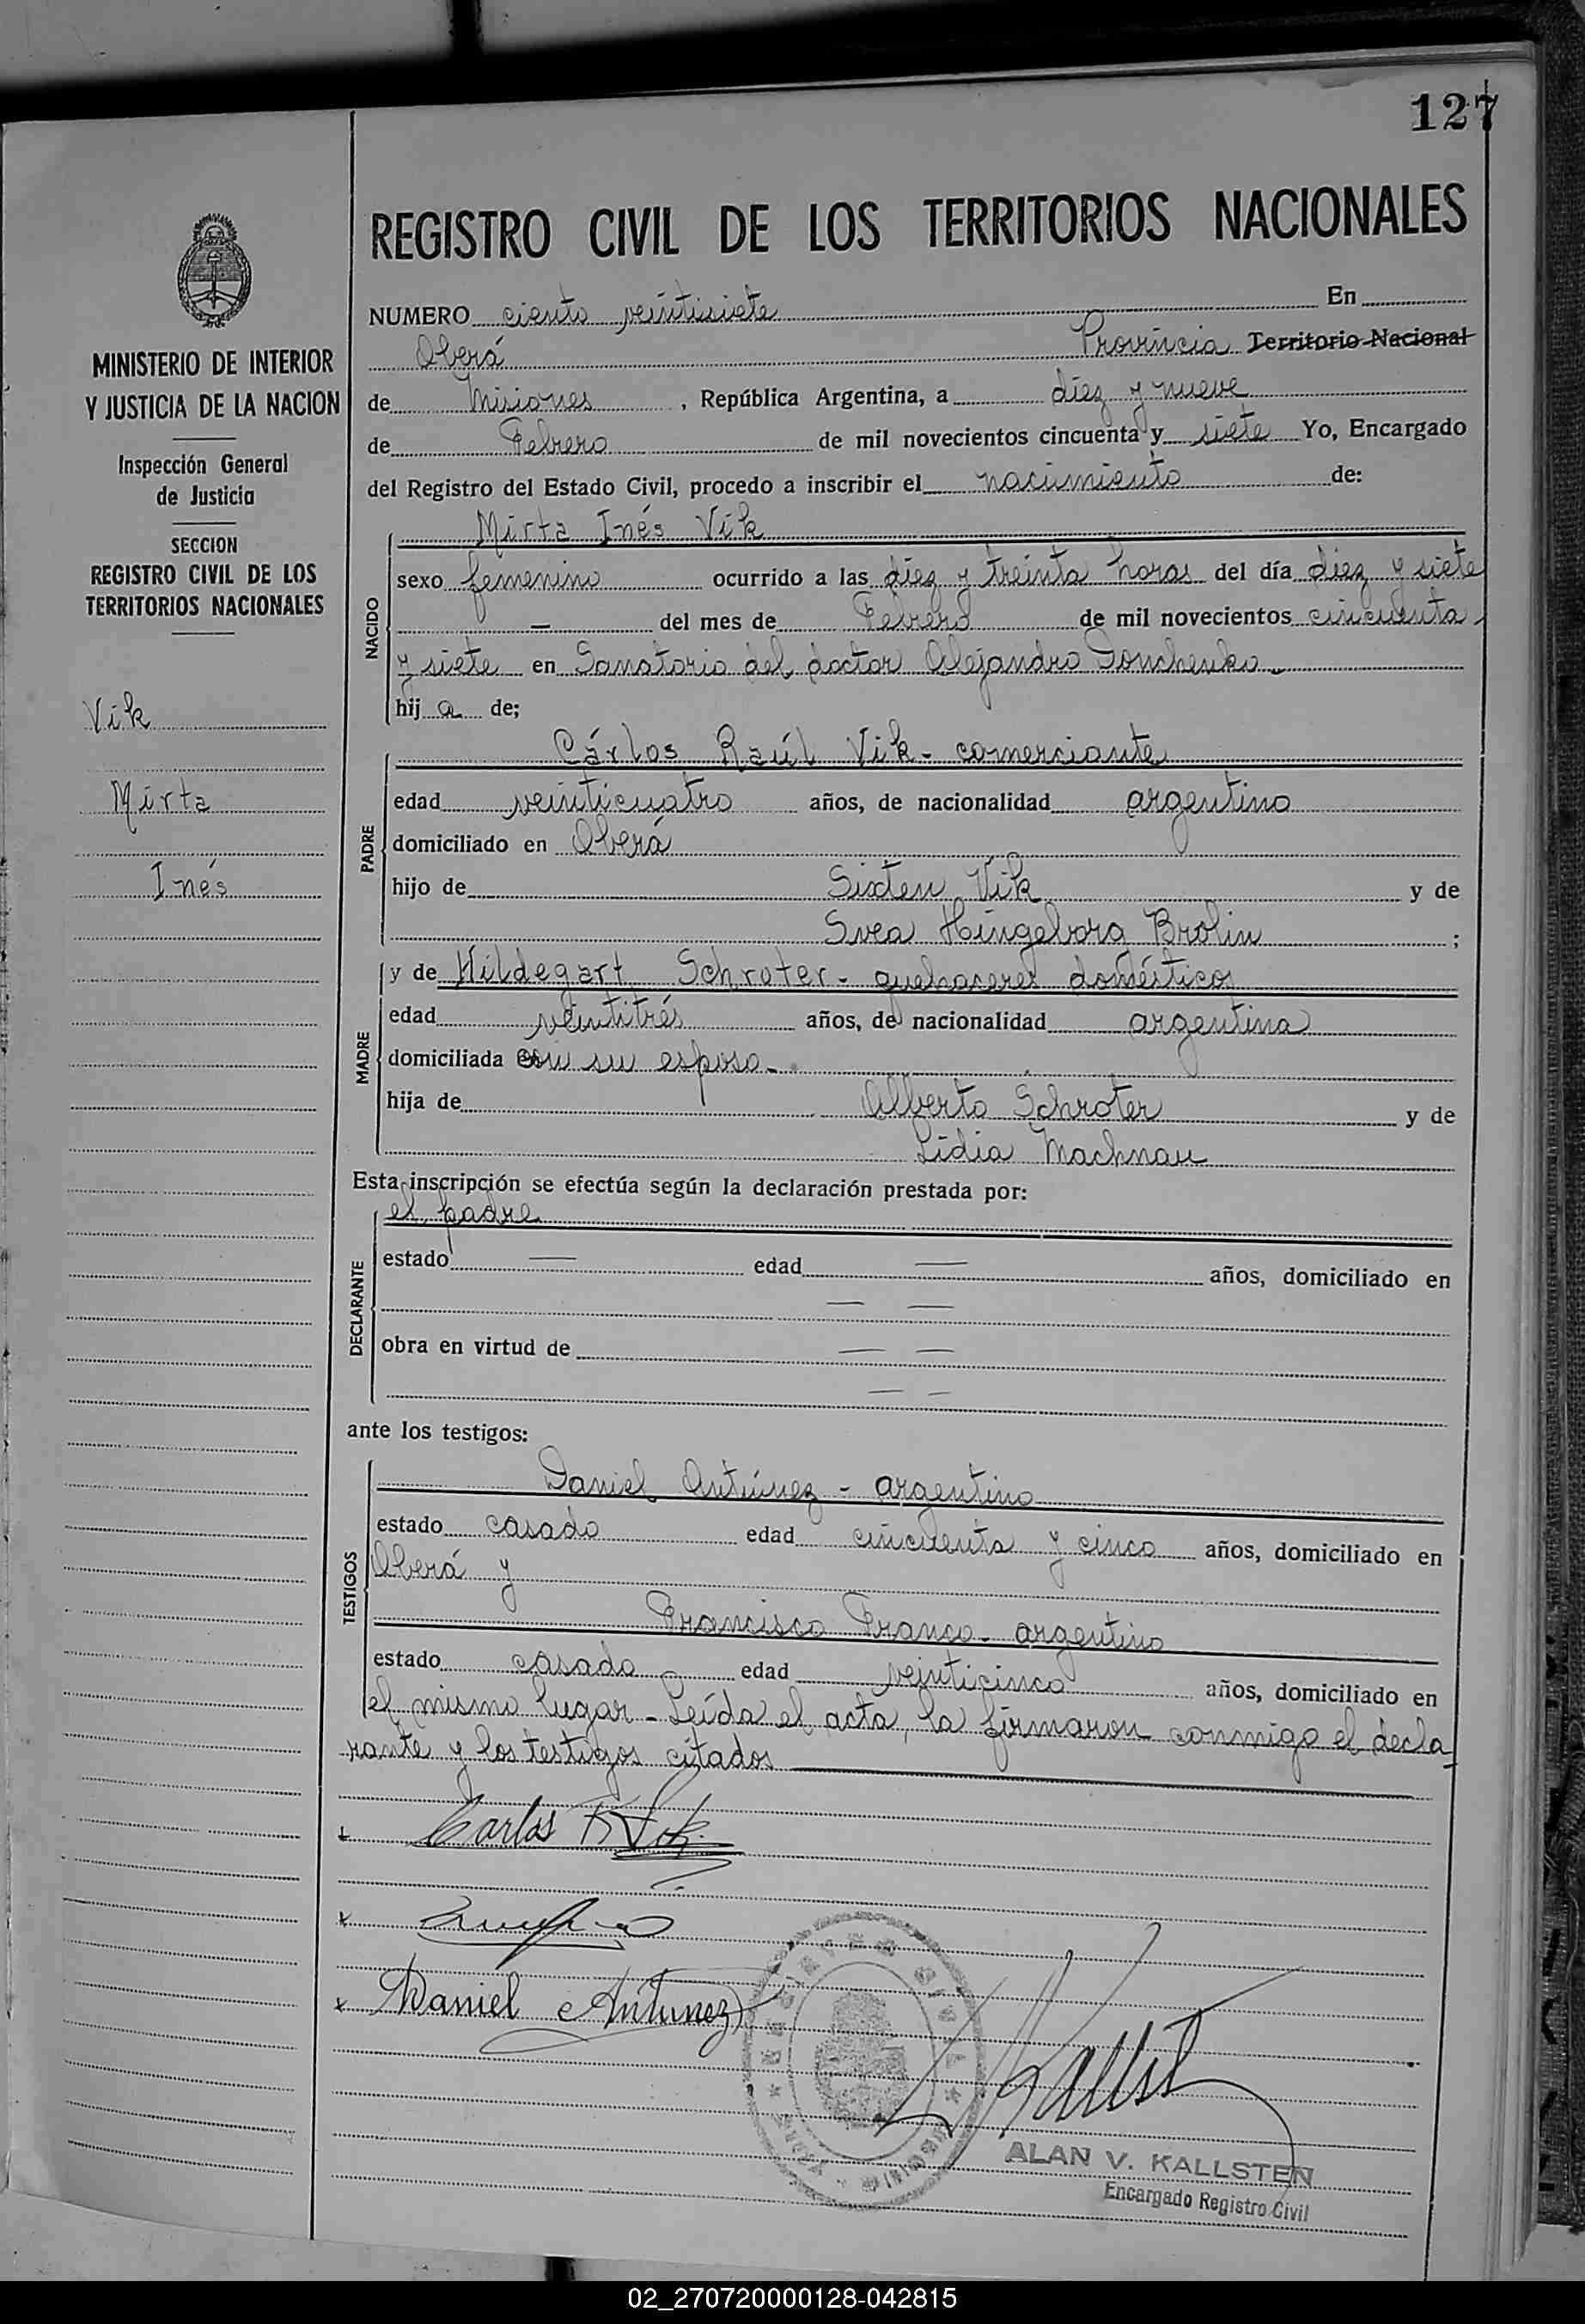 127
REGISTRO CIVIL DE LOS TERRITORIOS NACIONALES
MINISTERIO DE INTERIOR
Y JUSTICIA DE LA NACION
Inspección General
de Justicia
SECCION
REGISTRO CIVIL DE LOS
TERRITORIOS NACIONALES
Vik
Mirta
Inés
NUMERO ciento veintisiete En
Oberá Provincia Territorio Nacional
de Misiones, República Argentina, a diez y nueve
de Febrero de mil novecientos cincuenta y siete Yo, Encargado
del Registro del Estado Civil, procedo a inscribir el nacimiento de:
NACIDO
Mirta Inés Vik
sexo femenino ocurrido a las diez y treinta horas del día diez y siete
— del mes de Febrero de mil novecientos cincuenta
y siete en Sanatorio del doctor Alejandro Gonchenko-
hij a de;
PADRE
Cárlos Raúl Vik - comerciante
edad veinticuatro años, de nacionalidad argentino
domiciliado en Oberá
hijo de Sixten Vik y de
Svea Hingeborg Brolin ;
MADRE
y de Hildegart Schroter - quehaceres domésticos
edad veintitrés años, de nacionalidad argentina
domiciliada con su esposo-
hija de Alberto Schroter y de
Lidia Machnau
Esta inscripción se efectúa según la declaración prestada por:
DECLARANTE
el padre
estado — edad — años, domiciliado en
— —
obra en virtud de — —
— —
ante los testigos:
TESTIGOS
Daniel Antúnez - argentino
estado casado edad cincuenta y cinco años, domiciliado en
Oberá y
Francisco Franco - argentino
estado casado edad veinticinco años, domiciliado en
el mismo lugar - Leída el acta, la firmaron conmigo el decla-
rante y los testigos citados
Carlos R Vik
Daniel Antunez
REGISTRO CIVIL
Kallsten
ALAN V. KALLSTEN
Encargado Registro Civil
02_270720000128-042815